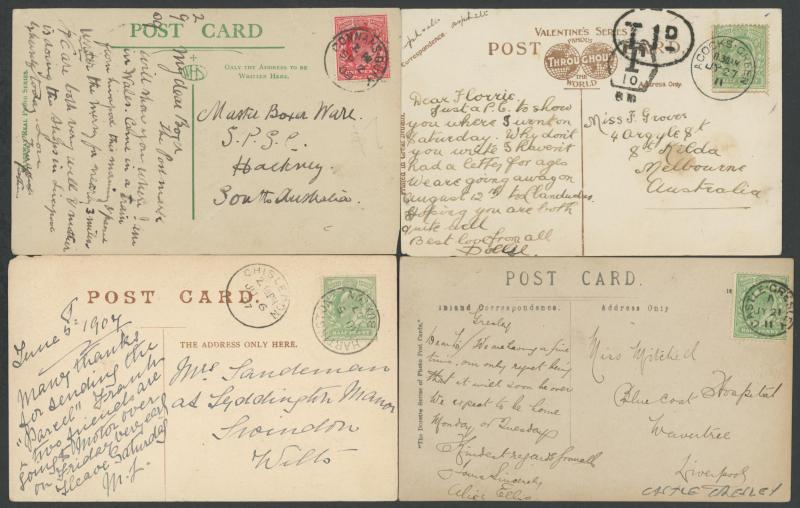 POST CARD
ONLY THE ADDRESS TO BE
WRITTEN HERE.
My dear Boxer
The Postmark
will show you where I am
in Wales. Came in a train
from Liverpool this morning & found
under the mersey for nearly 3 miles
We are both very well & mother
is doing the shops in Liverpool
Master Boxer Ware.
S.P.S.C.
Hackney
South Australia.
VALENTINE'S SERIES
FAMOUS
THROUGHOUT
THE WORLD
POST CARD.
Correspondence.
Address Only.
Dear Florrie
Just a P.C. to show
you where I went on
Saturday. Why don't
you write I haven't
had a letter for ages
We are going away on
August 12th to Llandudno.
Hoping you are both
quite well
Best love from all
Miss F. Grover
4 Argyle St
St Kilda
Melbourne
Australia
T 1D
T
10
ACOCKS-GREEN
JY 27
11
POST CARD.
THE ADDRESS ONLY BE HERE
CHISLEDON
JU 6
07
June 5th 1907
Many thanks
for sending the
"Parcel". Frank &
two friends are
going to Motor over
on Friday very early
& leave Saturday
M. L.
Mrs Sandeman
at Liddington Manor
Swindon
Wilts
POST CARD.
Inland Correspondence.
Address Only
Gresley
Dear L/ We are having a fine
time, am only regret being
that it will soon be over
We expect to be home
Monday or Tuesday
Kindest regards from all
Yours Sincerely
Alice Ellis
Miss Mitchell
Blue Coat Hospital
Wavertree
Liverpool
CASTLE GRESLEY
CASTLE GRESLEY
JY 21
11